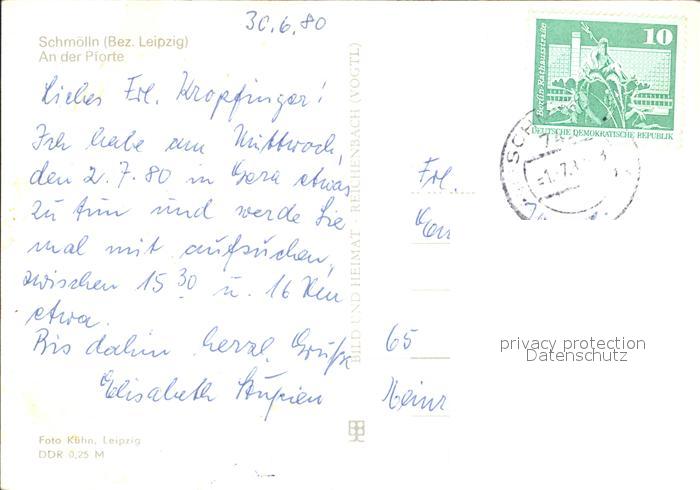 30.6.80
Schmölln (Bez. Leipzig)
An der Pforte
Liebes Frl. Kropfinger!
Ich habe am Mittwoch,
den 2.7.80 in Gera etwas
zu tun und werde Sie
mal mit aufsuchen,
zwischen 15 30 u. 16 Uhr
etwa.
Bis dahin herzl. Grüße
Elisabeth
Foto Kühn, Leipzig
DDR 0,25 M
BILD UND HEIMAT · REICHENBACH (VOGTL)
10
Berlin · Rathausstraße
DEUTSCHE DEMOKRATISCHE REPUBLIK
SCH
74
-1.-7.8
Frl.
65
Heinr
privacy protection
Datenschutz